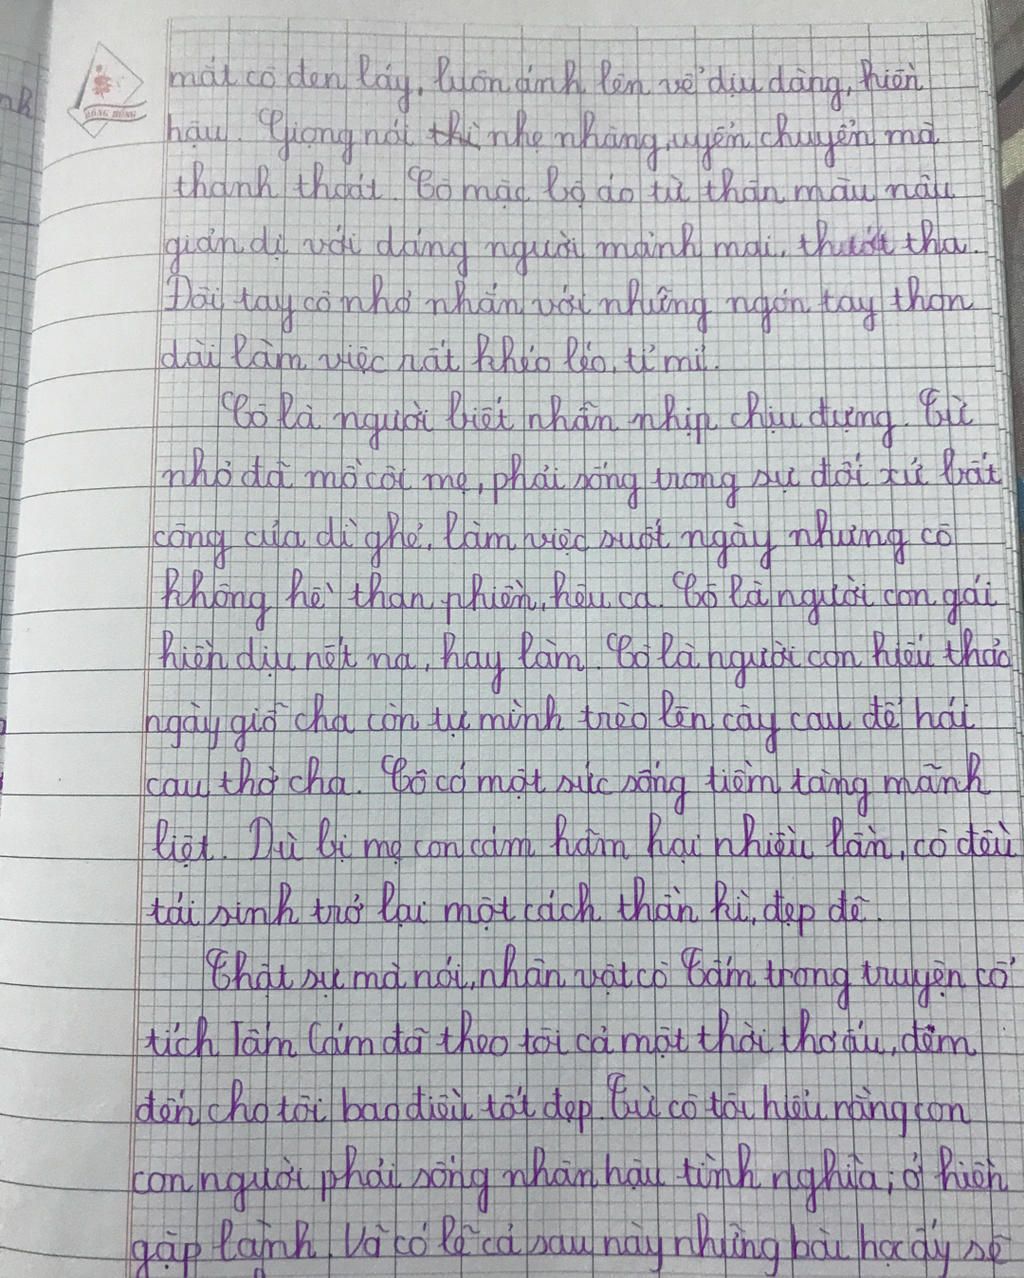 HỒNG HÀ
mắt cô đen láy, luôn ánh lên vẻ dịu dàng, hiền
hậu. Giọng nói thì nhẹ nhàng, uyển chuyển mà
thanh thoát. Cô mặc bộ áo tứ thân màu nâu
giản dị với dáng người mảnh mai, thướt tha.
Đôi tay cô nhỏ nhắn với những ngón tay thon
dài làm việc rất khéo léo, tỉ mỉ.
Cô là người biết nhẫn nhịp chịu đựng. Từ
nhỏ đã mồ côi mẹ, phải sống trong sự đối xử bất
công của dì ghẻ, làm việc suốt ngày nhưng cô
không hề than phiền, kêu ca. Cô là người con gái
hiền dịu nết na, hay làm. Cô là người con hiếu thảo
ngày giỗ cha còn tự mình trèo lên cây cau để hái
cau thờ cha. Cô có một sức sống tiềm tàng mãnh
liệt. Dù bị mẹ con cám hãm hại nhiều lần, cô đều
tái sinh trở lại một cách thần kì, đẹp đẽ.
Thật sự mà nói, nhân vật cô Tấm trong truyện cổ
tích Tấm Cám đã theo tôi cả một thời thơ ấu, đêm
đến cho tôi bao điều tốt đẹp. Từ cô tôi hiểu rằng con
con người phải sống nhân hậu tình nghĩa; ở hiền
gặp lành. Và có lẽ cả sau này những bài học ấy sẽ